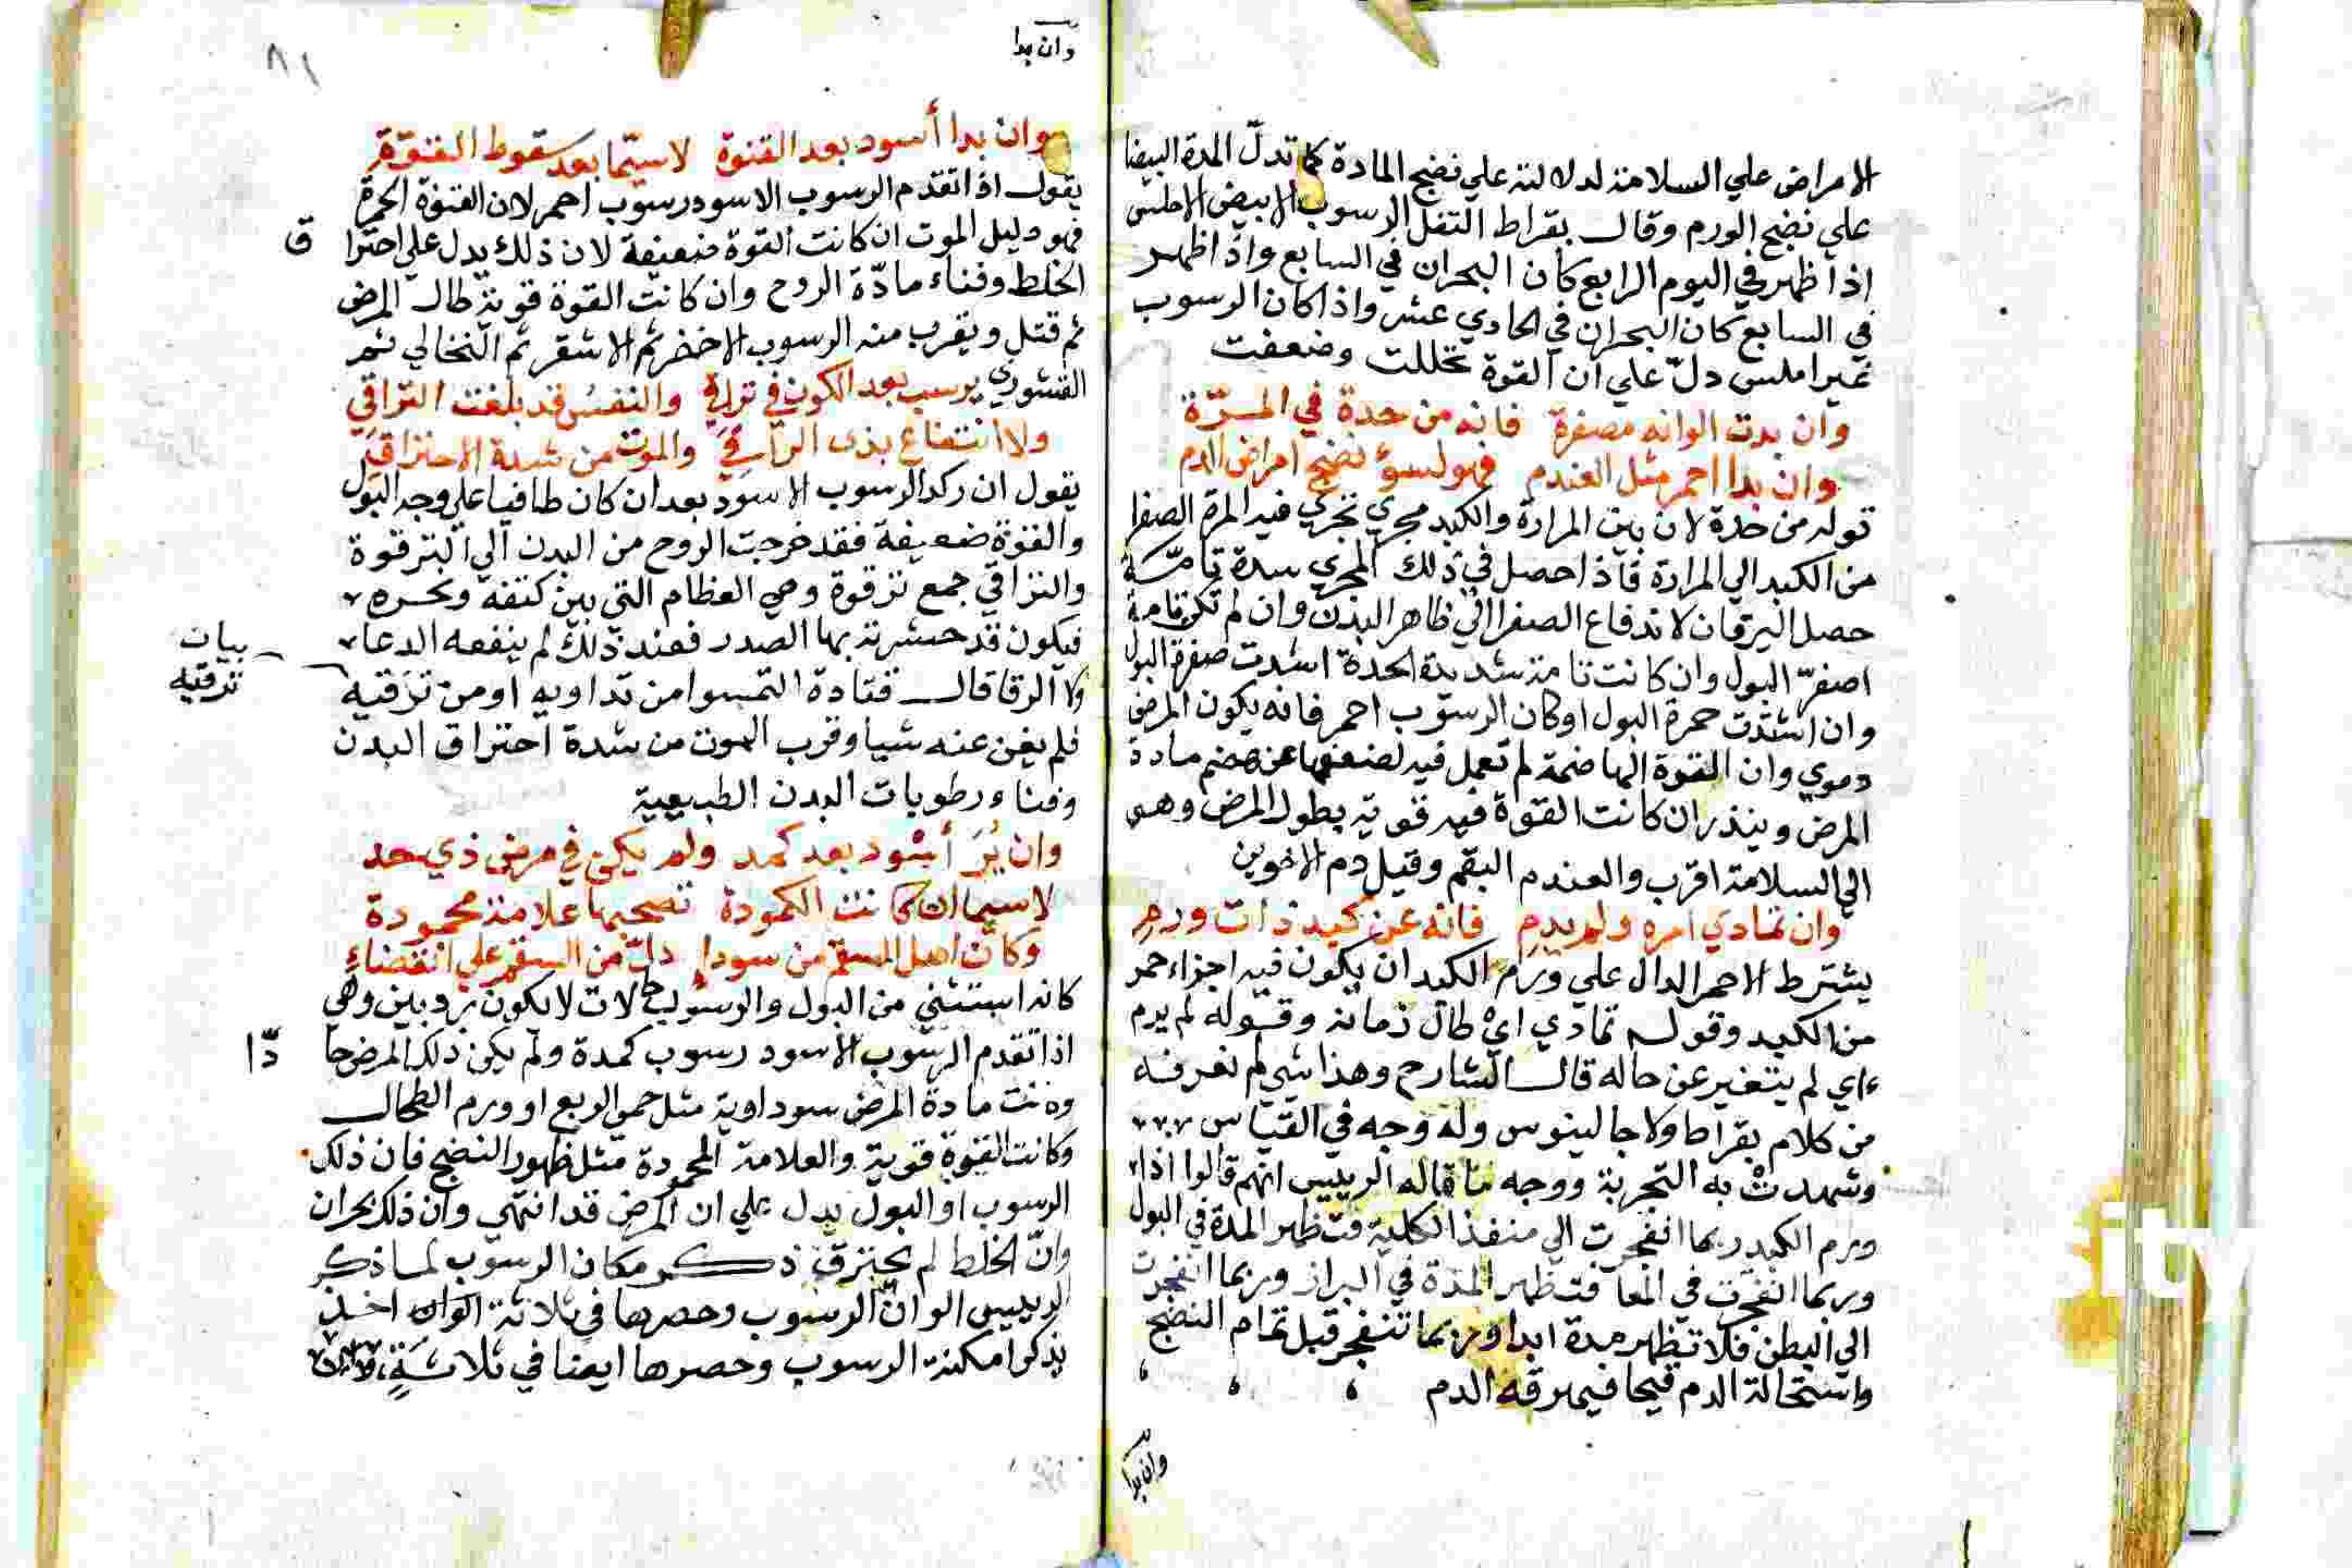 الامراض علي السلامة لدلالته علي نضج المادة كما تدلّ المدة البيضا
علي نضج الورم وقال بقراط الثفل الرسوب الابيض الاملس
اذا ظهر في اليوم الرابع كان البحران في السابع واذا ظهر
في السابع كان البحران في الحادي عشر واذا كان الرسوب
غير املس دلّ علي ان القوة تحللت وضعفت
وان بدت الوانه مصفرة فانه من حدة في المرّة
وان بدا احمر مثل العندم فهو لسوء نضج امراض الدم
قوله من حدة لان بين المرارة والكبد مجري تجري فيه المرة الصفرا
من الكبد الي المرارة فاذا حصل في ذلك المجري سدة تامّة
حصل اليرقان لاندفاع الصفرا الي ظاهر البدن وان لم تكن تامة
اصفرّ البول وان كانت تامة شديدة الحدة اشدت صفرة البول
وان اشتدت حمرة البول اوكان الرسوب احمر فانه يكون المرض
دموي وان القوة الهاضمة لم تعمل فيه لضعفها عن هضم مادة
المرض وينذر ان كانت القوة فيه قوية بطول المرض وهو
الي السلامة اقرب والعندم البقم وقيل دم الاخوين
وان تمادي امره ولم يدم فانه عن كبد ذات ورم
يشترط الاحمر الدال علي ورم الكبد ان يكون فيه اجزاء حمر
من الكبد وقوله تمادي اي طال زمانه وقوله لم يدم
اي لم يتغير عن حاله قال الشارح وهذا شي لم نعرفه
من كلام بقراط ولا جالينوس وله وجه في القياس
وشهدت به التجربة ووجه ما قاله الرييس انهم قالوا اذا
ورم الكبد ربما انفجرت الي منفذ الكلية فتظهر المدة في البول
وربما انفجرت في المعا فتظهر المدة في البراز وربما انفجرت
الي البطن فلا تظهر مدة ابدا وربما تنفجر قبل تمام النضج
واستحالة الدم قيحا فيهرقه الدم
وان بدا
وان بدا
٨١
وان بدا أسود بعد القنوة لاسيّما بعد سقوط القوّة
يقول اذا تقدم الرسوب الاسود رسوب احمر لان القنوة الحمرة
فهو دليل الموت ان كانت القوة ضعيفة لان ذلك يدل علي احترا ق
الخلط وفناء مادّة الروح وان كانت القوة قوية طال المرض
ثم قتل ويقرب منه الرسوب الاخضر ثم الاشقر ثم النخالي ثم
القشوري يرسب بعد الكون في تراقي والنفس قد بلغت التراقي
ولا انتفاع بذي الراقي والموت من شدة الاحتراق
يقول ان ركد الرسوب الاسود بعد ان كان طافيا علي وجه البول
والقوة ضعيفة فقد خرجت الروح من البدن الي الترقوة
والتراقي جمع ترقوة وهي العظام التي بين كتفه ونحره
فيكون قد حشرته بها الصدر فعند ذلك لم ينفعه الدعا
ولا الرقا قال قتادة التمسوا من تداويه او من ترقيه
بيان
ترقيه
فلم يغن عنه شيا وقرب الموت من شدة احتراق البدن
وفناء رطوبات البدن الطبيعية
وان يُرَ أسود بعد كمد ولم يكن في مرض ذي حد
لاسيما ان كانت الكمودة تصحبها علامة محمودة
وكان اصل السقم من سوداء دلّ من السقم علي انقضاء
كانه استثني من البول والرسوب حالات لا يكون رديين وهي
اذا تقدم الرسوب الاسود رسوب كمدة ولم يكن ذلك المرض حا دّا
وكانت مادة المرض سوداوية مثل حمي الربع او ورم الطحال
وكانت القوة قوية والعلامة المحمودة مثل ظهور النضج فان ذلك
الرسوب او البول يدل علي ان المرض قد انتهي وان ذلك بحران
وانّ الخلط لم يحترق ذكر مكان الرسوب لما ذكر
الرييس الوان الرسوب وحصرها في ثلاثة الوان اخذ
يذكر امكنة الرسوب وحصرها ايضا في ثلاثة